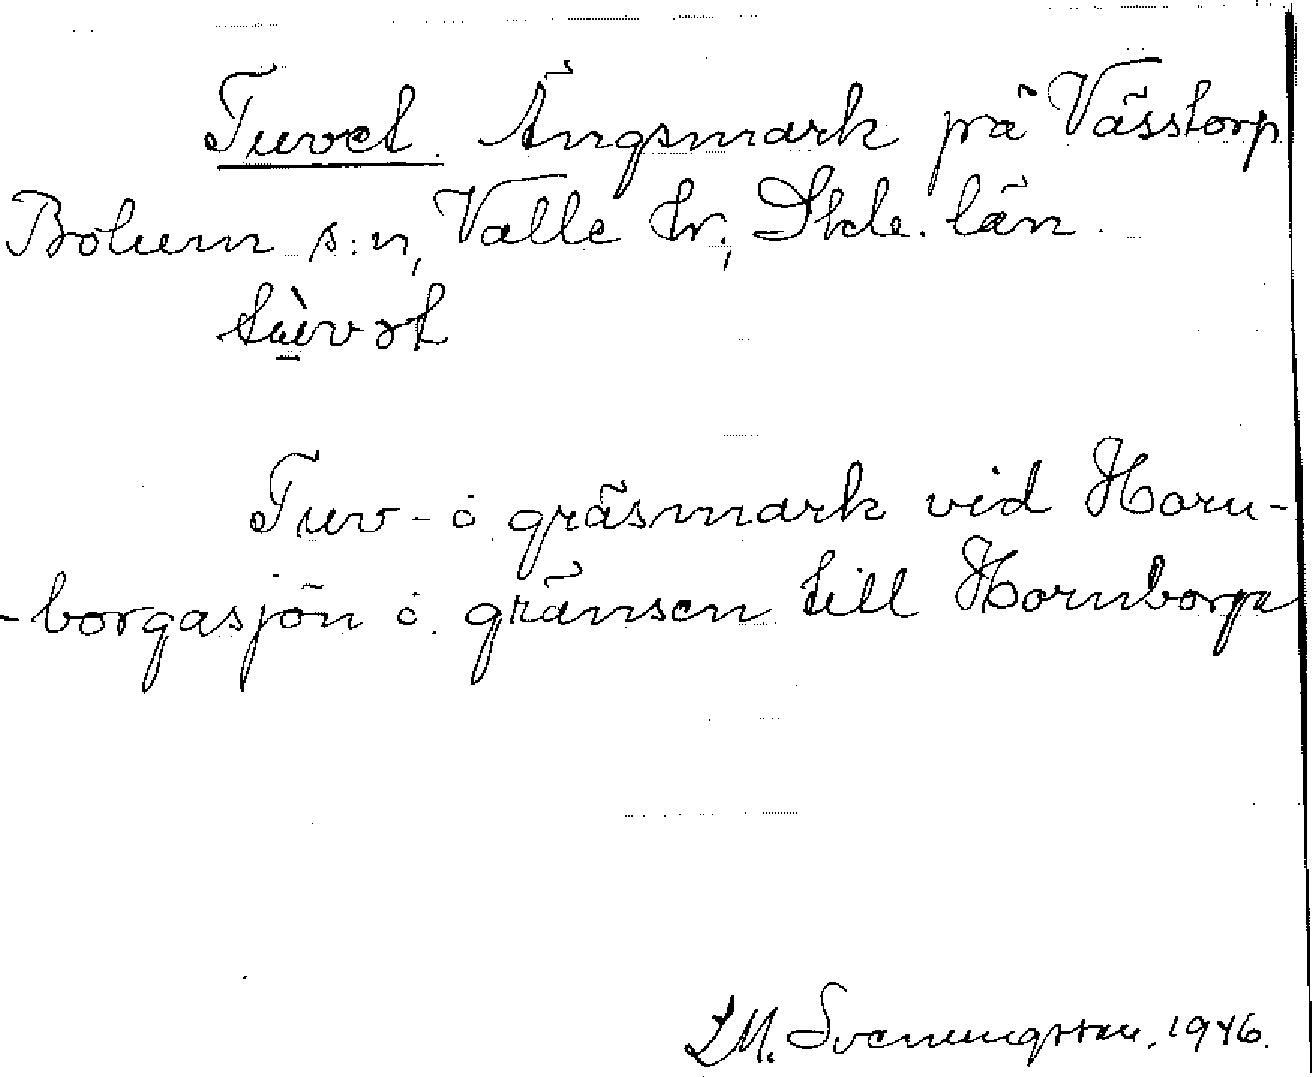 Tuvet. Ängsmark på Vässtorp
Bolum s:n, Valle hr, Skb. län.
tùvət
Tuv- o gräsmark vid Horn-
-borgasjön o. gränsen till Hornborga
M. Svenungsson, 1946.